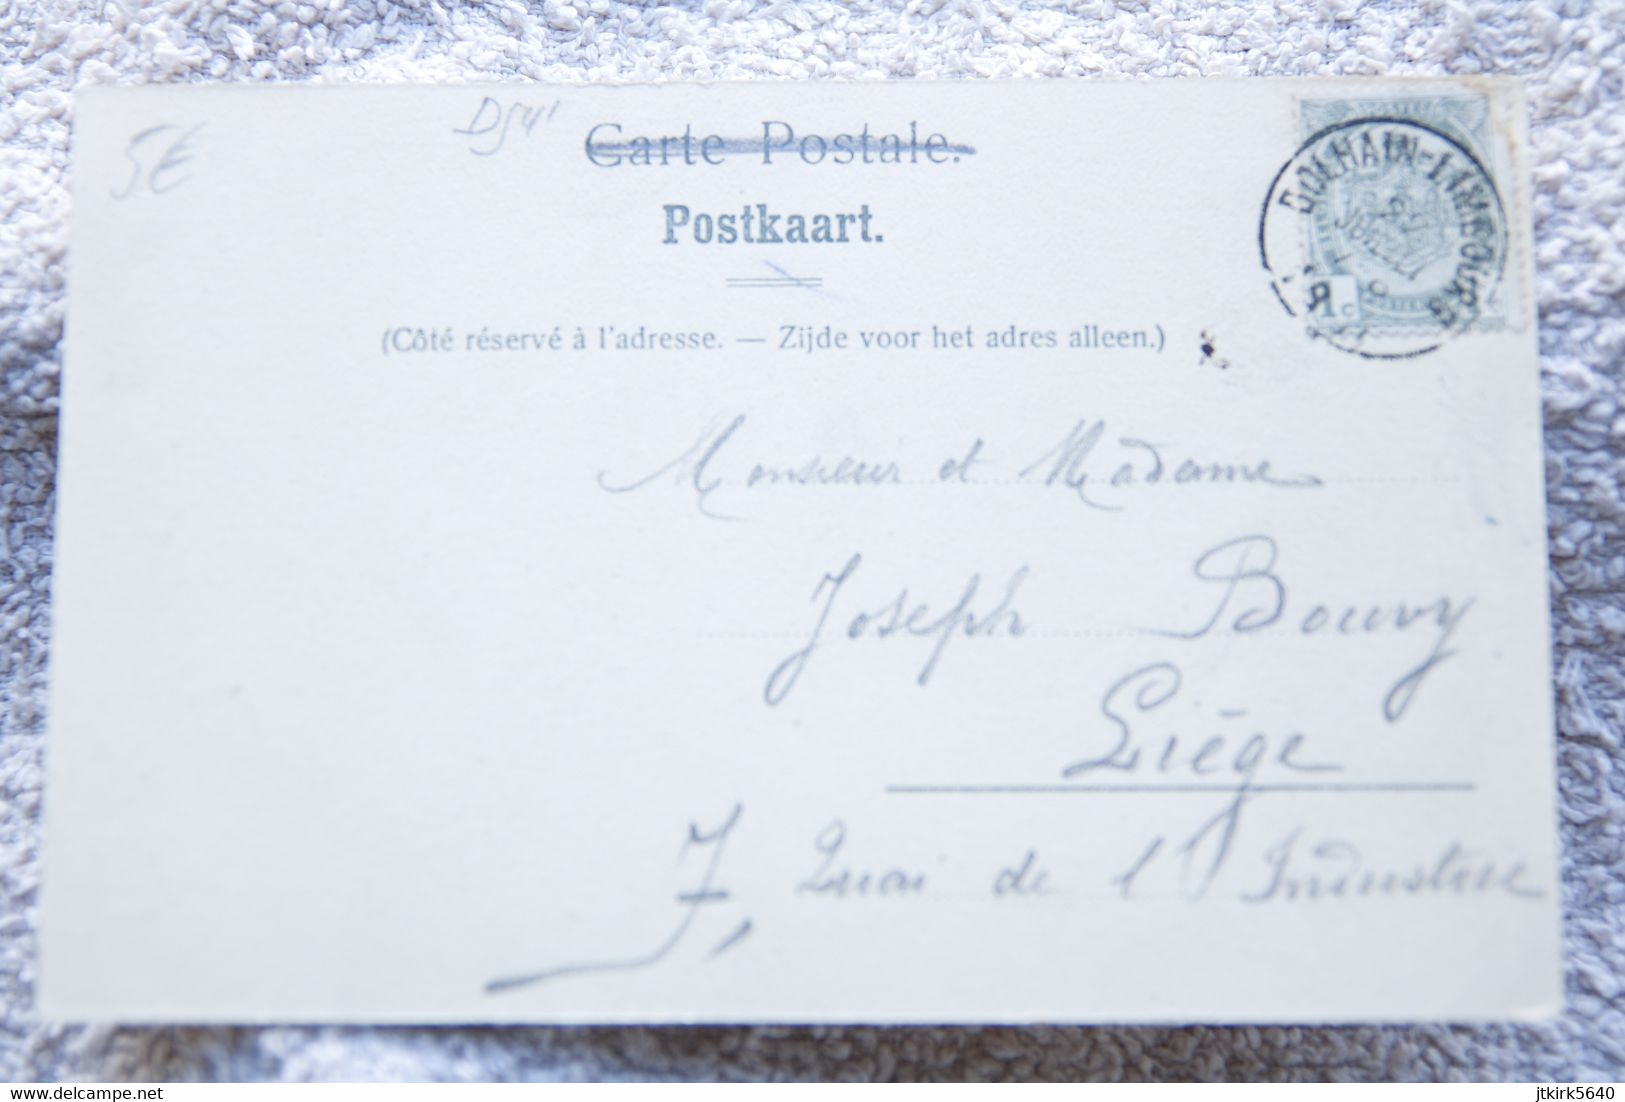 5.E
Carte Postale.
Postkaart.
(Côté réservé à l'adresse. — Zijde voor het adres alleen.)
DOLHAIN-LIMBOURG
1c
Monsieur et Madame
Joseph Bouvy
Liège
7, Quai de l'Industrie
delcampe.net
jtkirk5640